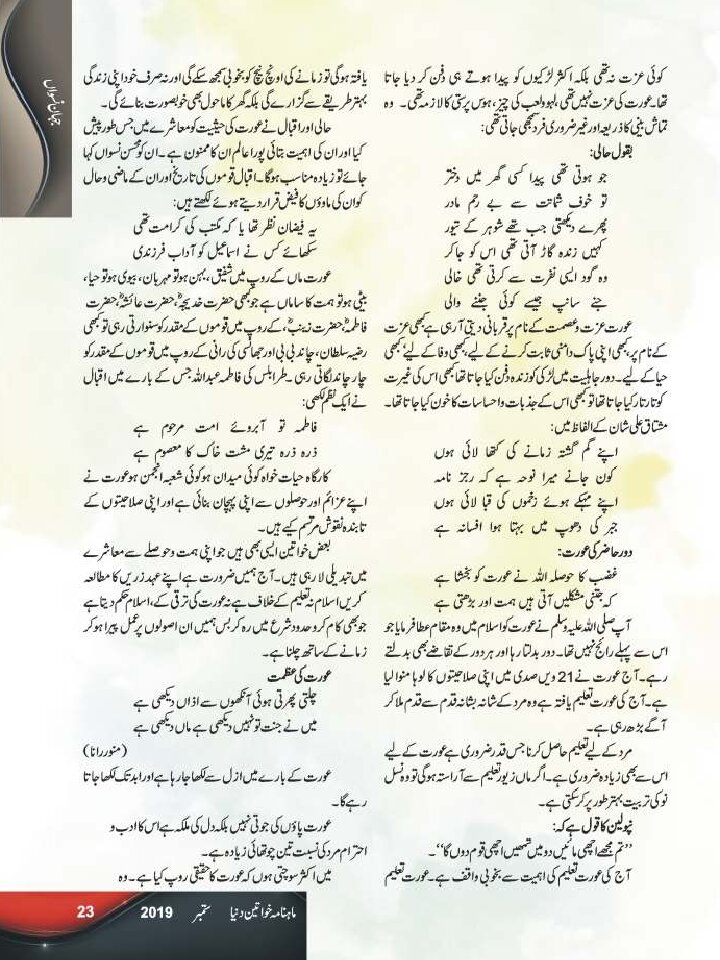 جہانِ نسواں
کوئی عزت نہ تھی بلکہ اکثر لڑکیوں کو پیدا ہوتے ہی دفن کر دیا جاتا
تھا۔ عورت کی عزت نہیں تھی، لہو ولعب کی چیز، ہوس پرستی کا لازمہ تھی۔ وہ
تماش بینی کا ذریعہ اور غیر ضروری فرد سمجھی جاتی تھی:
بقول حالی:
جو ہوتی تھی پیدا کسی گھر میں دختر
تو خوفِ شماتت سے بے رحم مادر
پھرے دیکھتی جب تھے شوہر کے تیور
کہیں زندہ گاڑ آتی تھی اس کو جاکر
وہ گود ایسی نفرت سے کرتی تھی خالی
جنے سانپ جیسے کوئی جننے والی
عورت عزت و عصمت کے نام پر قربانی دیتی آ رہی ہے کبھی عزت
کے نام پر، کبھی اپنی پاک دامنی ثابت کرنے کے لیے، کبھی وفا کے لیے، کبھی
حیا کے لیے۔ دورِ جاہلیت میں لڑکی کو زندہ دفن کیا جاتا تھا کبھی اس کی غیرت
کو تار تار کیا جاتا تھا تو کبھی اس کے جذبات و احساسات کا خون کیا جاتا تھا۔
مشتاق علی شان کے الفاظ میں:
اپنے گم گشتہ زمانے کی کتھا لائی ہوں
کون جانے میرا نوحہ ہے کہ رجز نامہ
اپنے مہکے ہوئے زخموں کی قبا لائی ہوں
جبر کی دھوپ میں بہتا ہوا افسانہ ہے
دورِ حاضر کی عورت:
غضب کا حوصلہ اللہ نے عورت کو بخشا ہے
کہ جتنی مشکلیں آتی ہیں ہمت اور بڑھتی ہے
آپ صلی اللہ علیہ وسلم نے عورت کو اسلام میں وہ مقام عطا فرمایا جو
اس سے پہلے رائج نہیں تھا۔ دور بدلتا رہا اور ہر دور کے تقاضے بھی بدلتے
رہے۔ آج عورت نے 21 ویں صدی میں اپنی صلاحیتوں کا لوہا منوا لیا
ہے۔ آج کی عورت تعلیم یافتہ ہے وہ مرد کے شانہ بشانہ قدم سے قدم ملا کر
آگے بڑھ رہی ہے۔
مرد کے لیے تعلیم حاصل کرنا جس قدر ضروری ہے عورت کے لیے
اس سے بھی زیادہ ضروری ہے۔ اگر ماں زیورِ تعلیم سے آراستہ ہوگی تو وہ نسل
نو کی تربیت بہتر طور پر کر سکتی ہے۔
نپولین کا قول ہے کہ:
’’تم مجھے اچھی مائیں دو میں تمھیں اچھی قوم دوں گا‘‘۔
آج کی عورت تعلیم کی اہمیت سے بخوبی واقف ہے۔ عورت تعلیم
یافتہ ہوگی تو زمانے کی اونچ نیچ کو بخوبی سمجھ سکے گی اور نہ صرف خود اپنی زندگی
بہتر طریقے سے گزارے گی بلکہ گھر کا ماحول بھی خوبصورت بنائے گی۔
حالی اور اقبال نے عورت کی حیثیت کو معاشرے میں جس طور پیش
کیا اور ان کی اہمیت بتائی پورا عالم ان کا ممنون ہے۔ ان کو محسنِ نسواں کہا
جائے تو زیادہ مناسب ہوگا۔ اقبال قوموں کی تاریخ اور ان کے ماضی و حال
کو ان کی ماؤوں کا فیض قرار دیتے ہوئے لکھتے ہیں:
یہ فیضانِ نظر تھا یا کہ مکتب کی کرامت تھی
سکھائے کس نے اسماعیل کو آدابِ فرزندی
عورت ماں کے روپ میں شفیق، بہن ہو تو مہربان، بیوی ہو تو حیا،
بیٹی ہو تو ہمت کا ساماں ہے جو کبھی حضرت خدیجہؓ، حضرت عائشہؓ، حضرت
فاطمہؓ، حضرت زینبؓ، کے روپ میں قوموں کے مقدر کو سنوارتی رہی تو کبھی
رضیہ سلطان، چاند بی بی اور جھانسی کی رانی کے روپ میں قوموں کے مقدر کو
چار چاند لگاتی رہی۔ طرابلس کی فاطمہ عبداللہ جس کے بارے میں اقبال
نے ایک نظم لکھی:
فاطمہ تو آبروئے امت مرحوم ہے
ذرہ ذرہ تیری مشت خاک کا معصوم ہے
کارگاہِ حیات خواہ کوئی میدان ہو کوئی شعبہ انجمن ہو عورت نے
اپنے عزائم اور حوصلوں سے اپنی پہچان بنائی ہے اور اپنی صلاحیتوں کے
تابندہ نقوش مرتسم کیے ہیں۔
بعض خواتین ایسی بھی ہیں جو اپنی ہمت و حوصلے سے معاشرے
میں تبدیلی لا رہی ہیں۔ آج ہمیں ضرورت ہے اپنے عہدِ زریں کا مطالعہ
کریں اسلام نہ تعلیم کے خلاف ہے نہ عورت کی ترقی کے، اسلام حکم دیتا ہے
جو بھی کام کرو حدودِ شرع میں رہ کر بس ہمیں ان اصولوں پر عمل پیرا ہو کر
زمانے کے ساتھ چلنا ہے۔
عورت کی عظمت
چلتی پھرتی ہوئی آنکھوں سے اذاں دیکھی ہے
میں نے جنت تو نہیں دیکھی ہے ماں دیکھی ہے
(منور رانا)
عورت کے بارے میں ازل سے لکھا جا رہا ہے اور ابد تک لکھا جاتا
رہے گا۔
عورت پاؤں کی جوتی نہیں بلکہ دل کی ملکہ ہے اس کا ادب و
احترام مرد کی نسبت تین چوتھائی زیادہ ہے۔
میں اکثر سوچتی ہوں کہ عورت کا حقیقی روپ کیا ہے۔ وہ
ماہنامہ خواتین دنیا ستمبر 2019 23